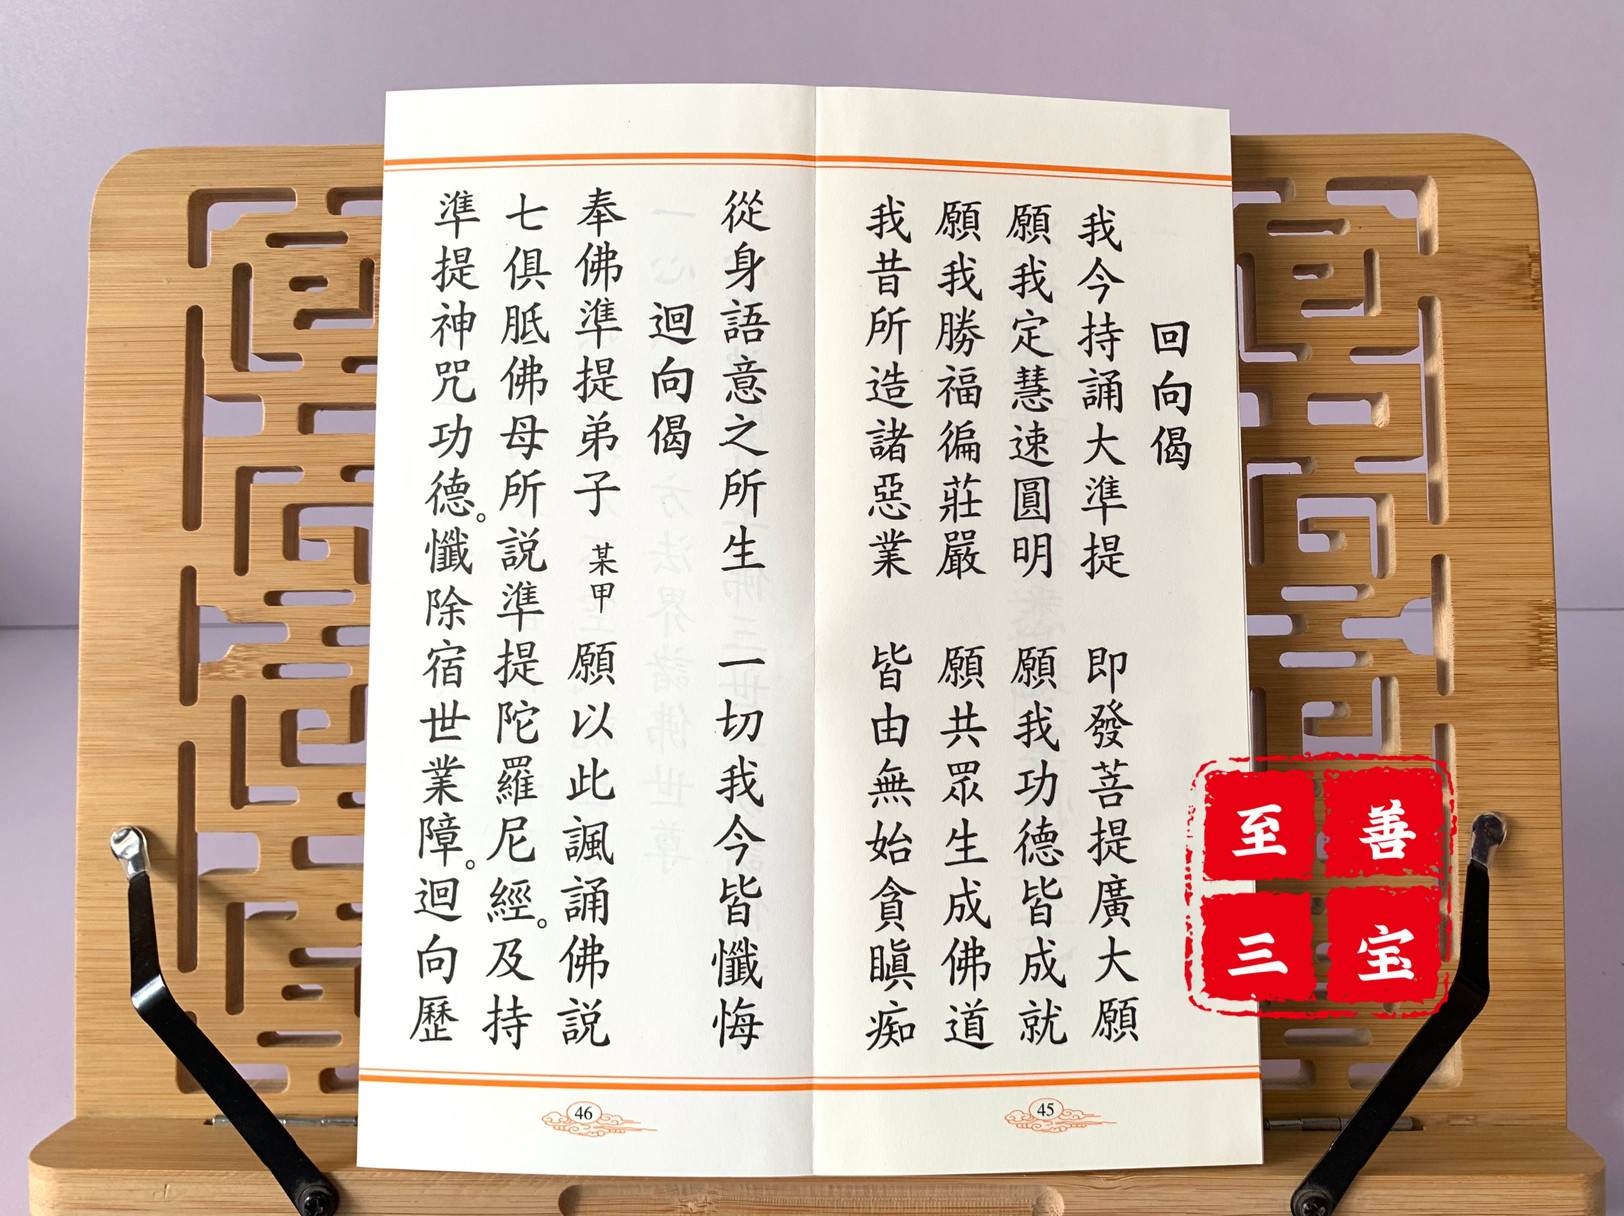 回向偈
我今持誦大準提 即發菩提廣大願
願我定慧速圓明 願我功德皆成就
願我勝福徧莊嚴 願共眾生成佛道
我昔所造諸惡業 皆由無始貪瞋痴
45
從身語意之所生 一切我今皆懺悔
迴向偈
奉佛準提弟子 某甲 願以此諷誦佛説
七俱胝佛母所説準提陀羅尼經。及持
準提神咒功德。懺除宿世業障。迴向歷
46
至善
三宝